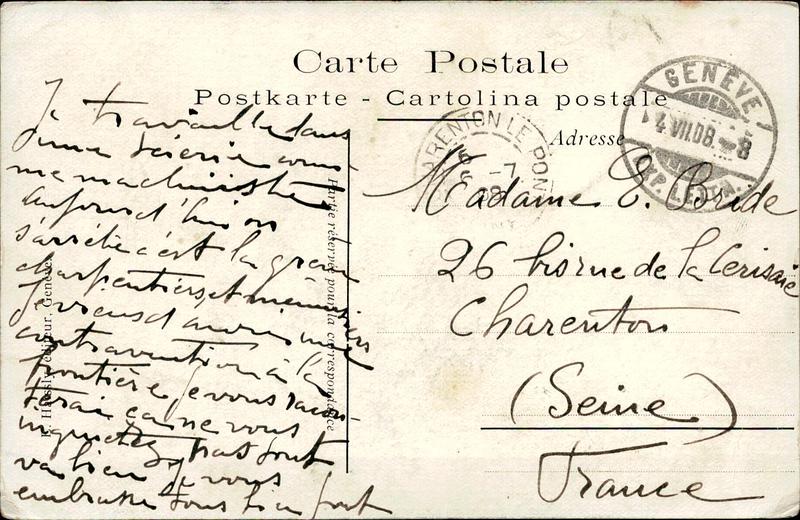 Carte Postale
Postkarte - Cartolina postale
Adresse
GENÈVE 1
4 VII 08 - 8
EXP. LETTR.
CHARENTON LE PON
-7
08
Partie réservée pour la correspondance
éditeur, Genève
Je travaille dans
une scierie comme
machiniste
aujourd'hui on
s'arrête c'est la grève
charpentiers et menuisiers
Je viens d'avoir une
contravention à la
frontière, je vous racon-
terai ça ne vous
inquiétez pas tout
va bien je vous
embrasse tous bien fort
Madame E. Bride
26 bis rue de la Cerisaie
Charenton
(Seine)
France